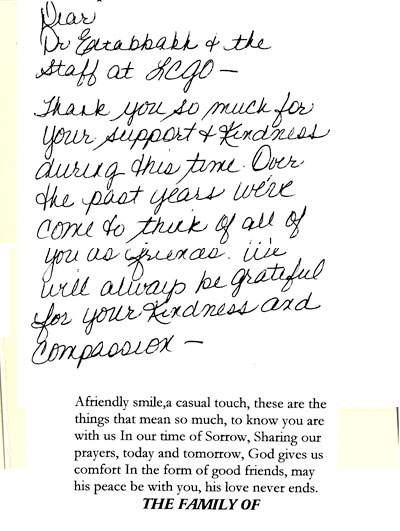 Dear
Dr Eatabbakh & the
Staff at LCGO –
Thank you so much for
your support & Kindness
during this time. Over
the past years we've
come to think of all of
you as friends. We
will always be grateful
for your Kindness and
compassion –
Afriendly smile,a casual touch, these are the
things that mean so much, to know you are
with us In our time of Sorrow, Sharing our
prayers, today and tomorrow, God gives us
comfort In the form of good friends, may
his peace be with you, his love never ends.
THE FAMILY OF